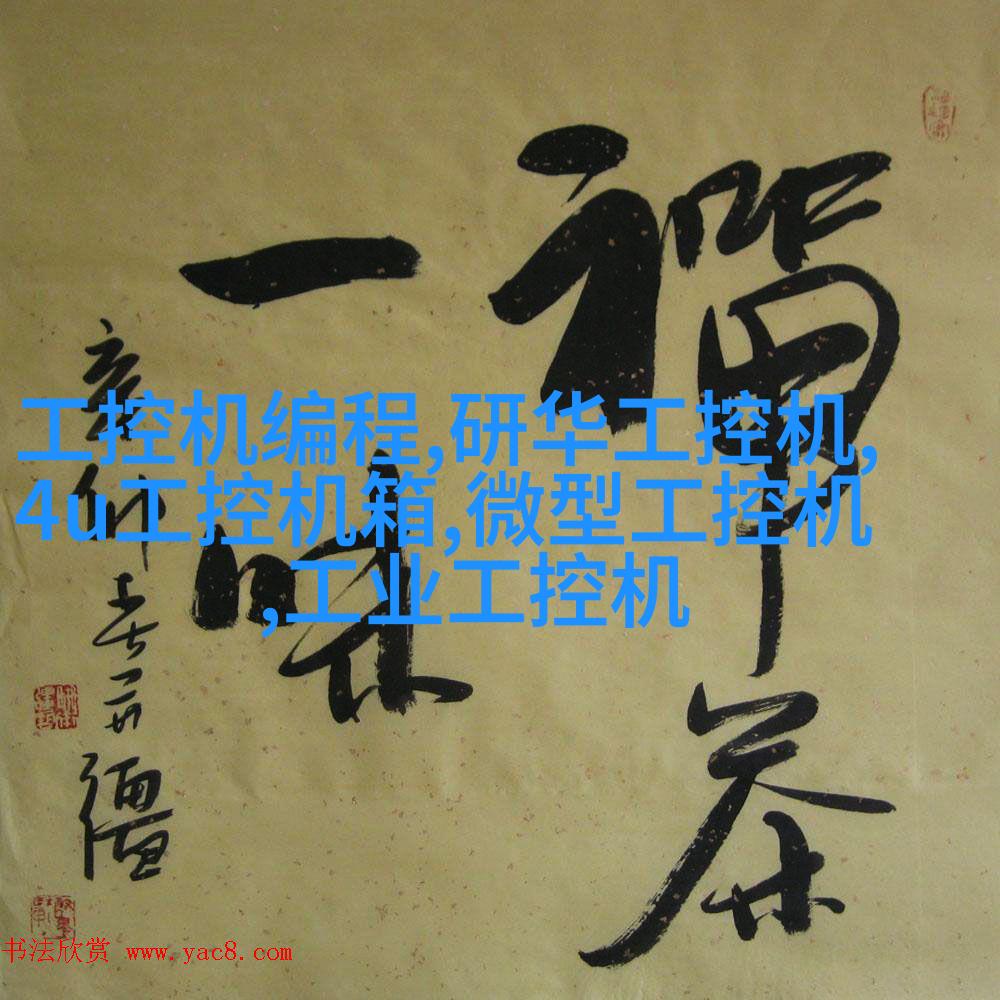 禪茶
一味
辛卯春
工控机编程,研华工控机,
4u工控机箱,微型工控机
,工业工控机
书法欣赏 www.yac8.com